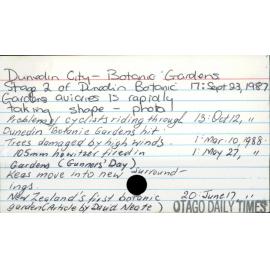 Dunedin City - Botanic Gardens
Stage 2 of Dunedin Botanic 17: Sept 23, 1987
Gardens aviaries is rapidly
taking shape - photo
Problem/ cyclists riding through 13: Oct 12, "
Dunedin Botanic Gardens hit.
Trees damaged by high winds. 1: Mar. 10, 1988
105mm howitzer fired in 1: May 27, "
Gardens (Gunners' Day)
Keas move into new surround-
ings.
New Zealand's first botanic 20: June 17, "
garden (Article by David Neate)
OTAGO DAILY TIMES